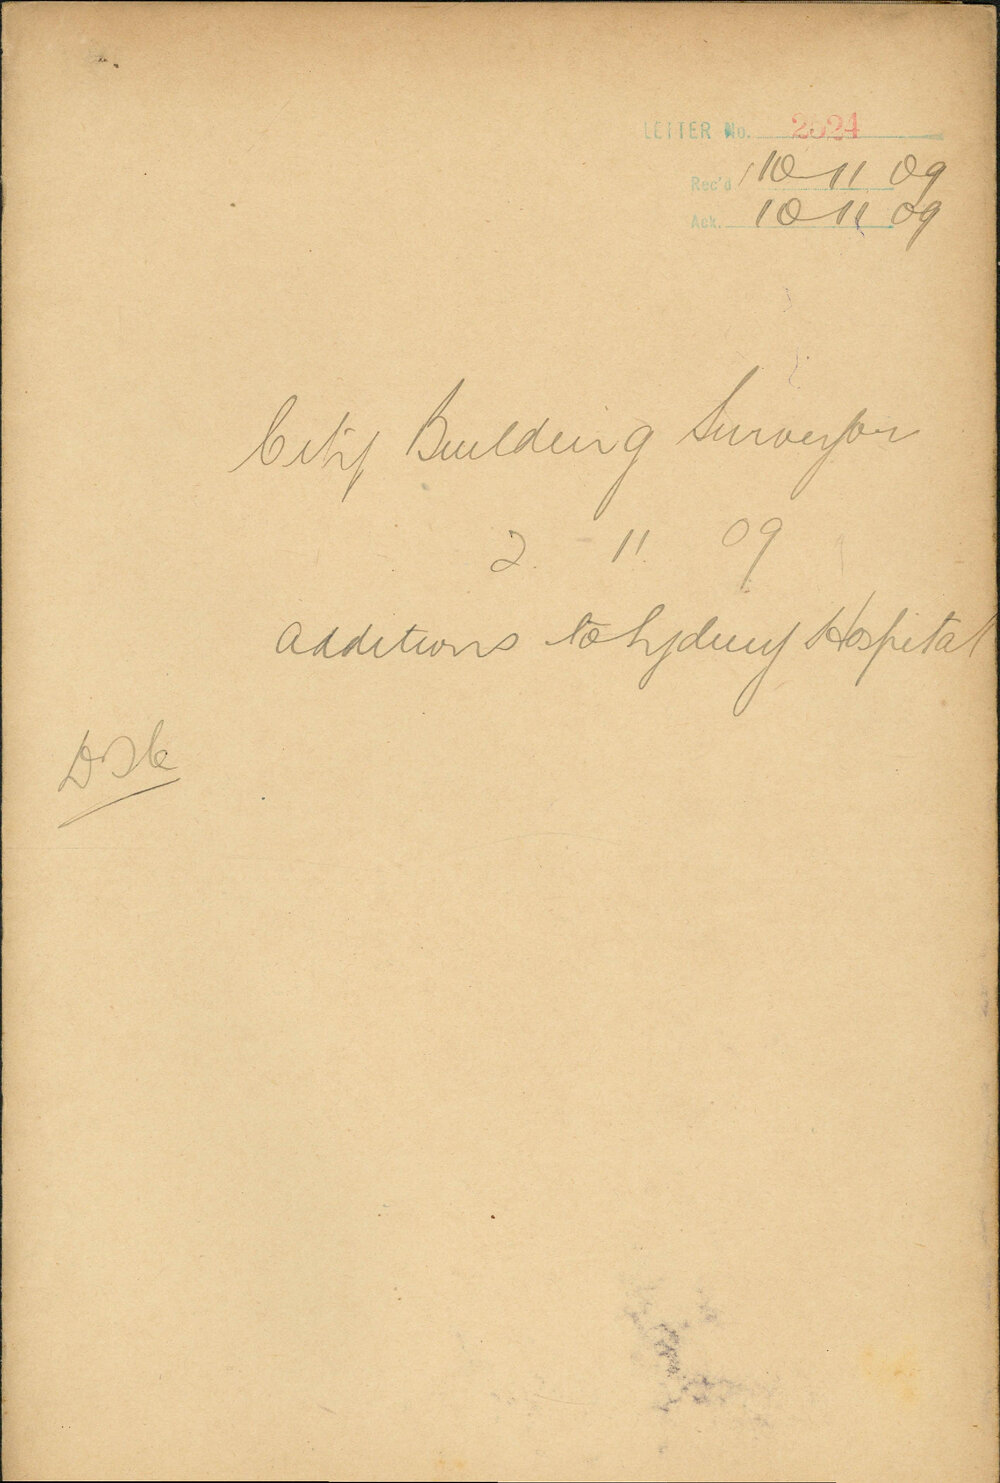 LETTER No. 2524
Rec'd 10 11 09
Ack. 10 11 09
City Building Surveyor
2. 11. 09
Additions to Sydney Hospital